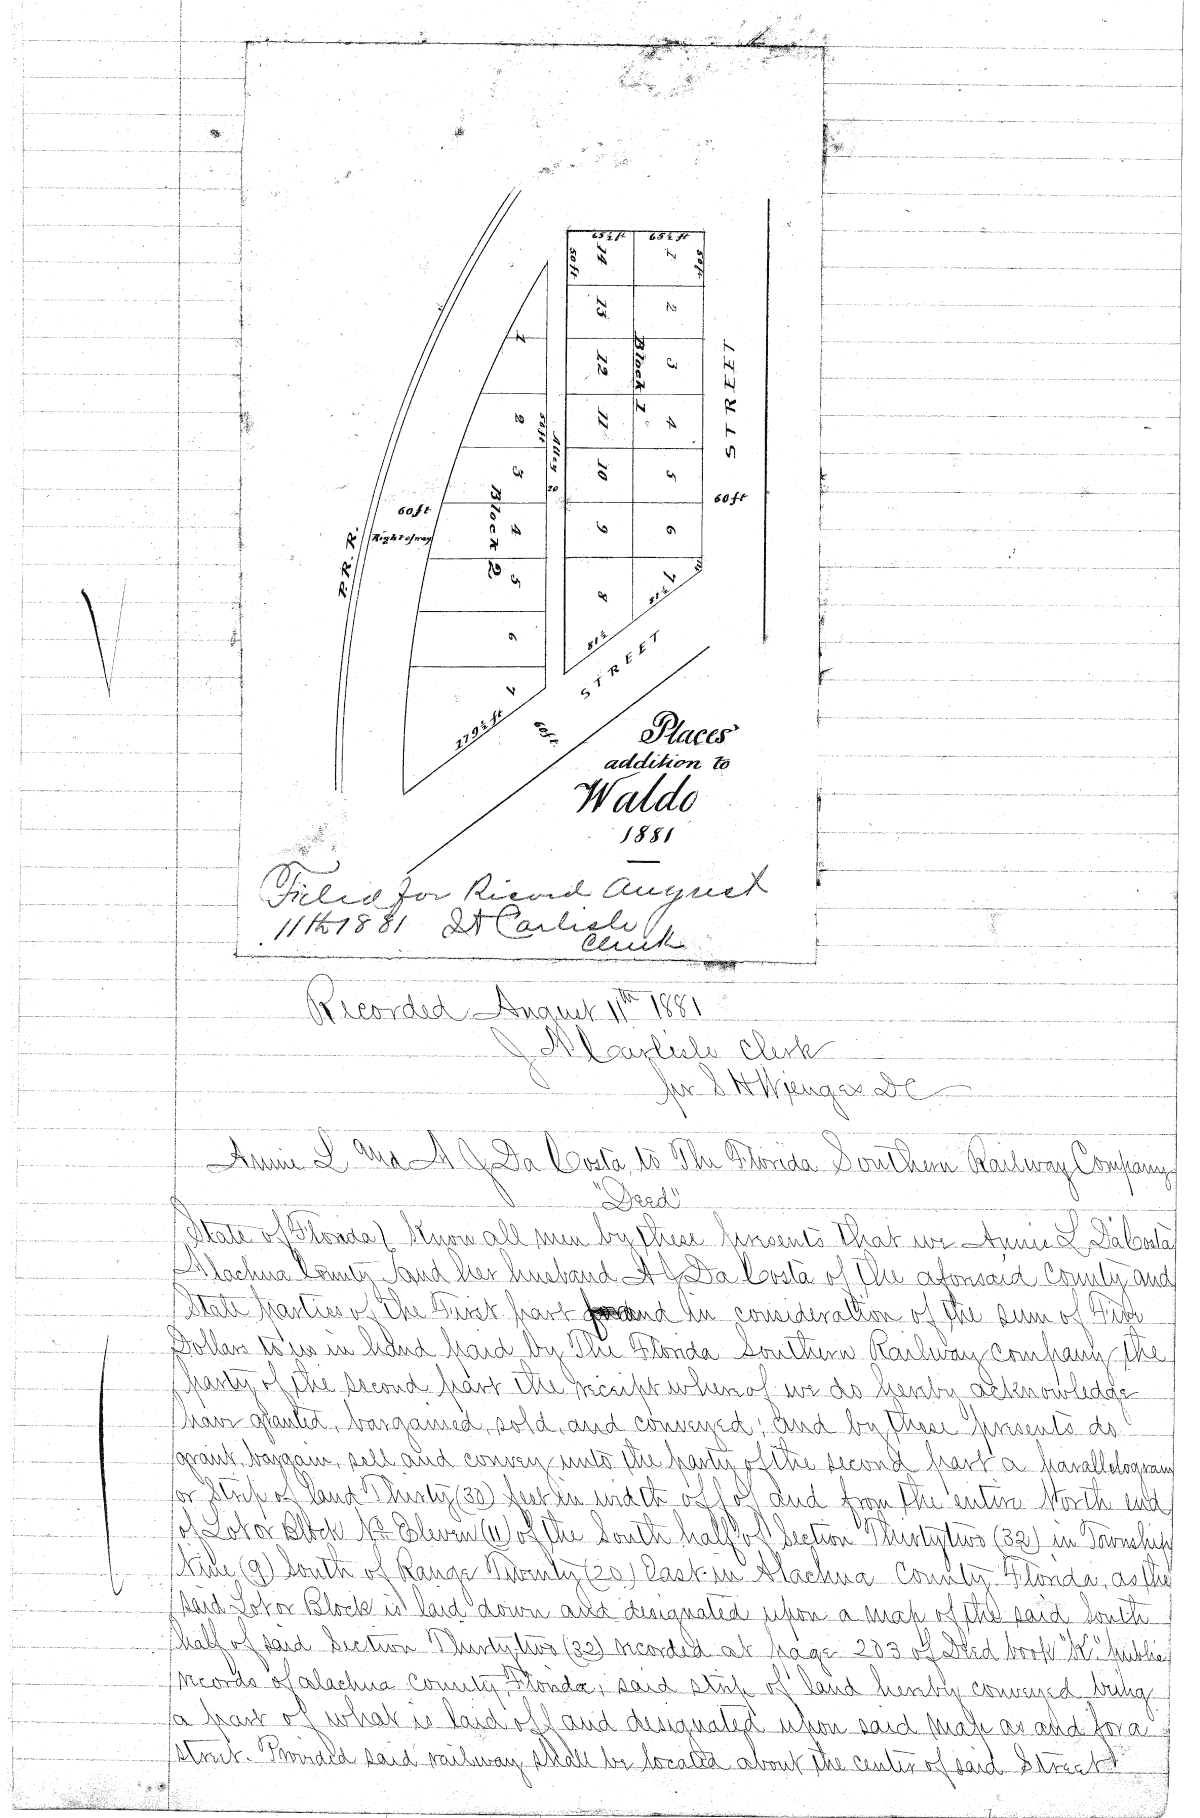 65½ ft 65½ ft
50ft 14 1 50ft
13 2
1 12 Block 1 3
2 50ft Alley 11 4 STREET
3 20 10 5
60ft Block 2 4 9 6 60ft
P.R.R. Right of way
5 8 7
6 81½ STREET
7
179½ ft 60ft.
Places'
addition to
Waldo
1881
Filed for Record August
11th 1881 J A Carlisle
Clerk
Recorded August 11th 1881
J A Carlisle Clerk
pr S H Wienges DC
Annie L and A J Da Costa to The Florida Southern Railway Company
"Deed"
State of Florida } Know all men by these presents that we Annie L DaCosta
Alachua County } and her husband A J Da Costa of the aforsaid County and
State parties of the First part and in consideration of the sum of Five
Dollars to us in hand paid by The Florida Southern Railway company the
party of the second part the receipt whereof we do hereby acknowledge
have granted, bargained, sold, and conveyed; and by these presents do
grant, bargain, sell and convey unto the party of the second part a parallelogram
or strip of land Thirty (30) feet in width off of and from the entire North end
of Lot or Block No Eleven (11) of the South half of Section Thirtytwo (32) in Township
Nine (9) South of Range Twenty (20) East in Alachua County, Florida, as the
said Lot or Block is laid down and designated upon a map of the said South
half of said Section Thirtytwo (32) recorded at page 203 of Deed book "K" public
records of Alachua County, Florida; said strip of land hereby conveyed being
a part of what is laid off and designated upon said map as and for a
street. Provided said railway shall be located about the center of said Street